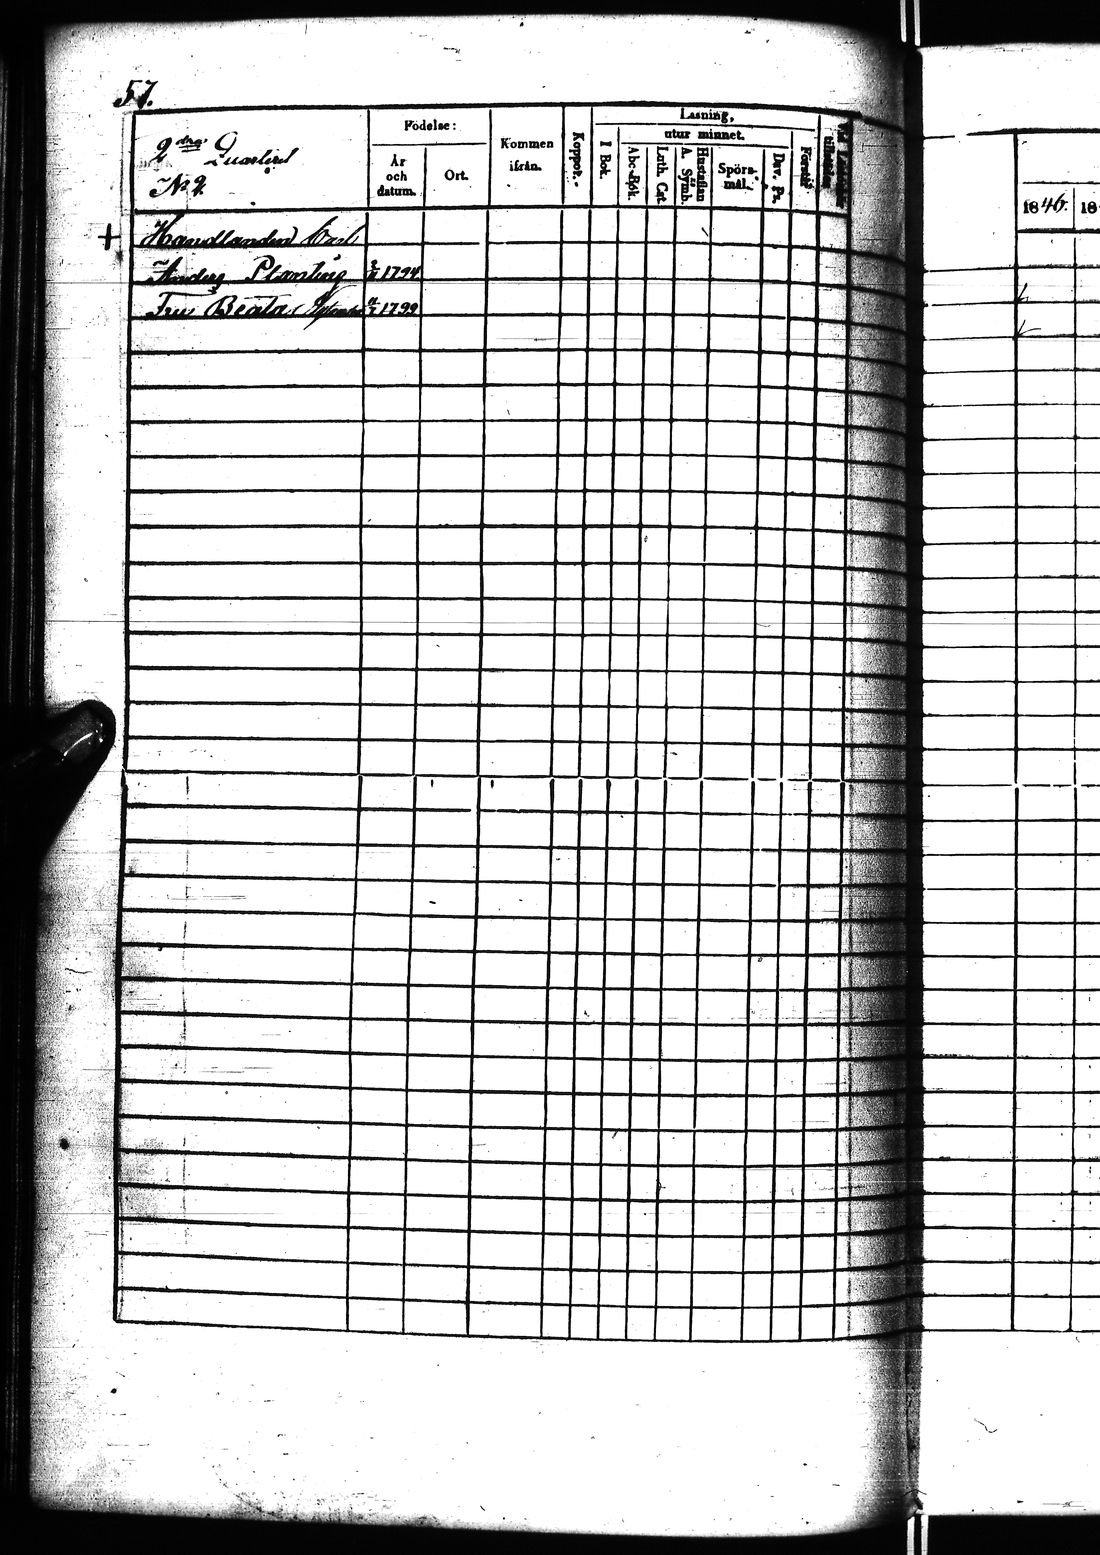 57.
2dra Quarteret
No 2
Födelse:
År och datum.
Ort.
Kommen ifrån.
Koppor.
Läsning,
utur minnet.
I Bok.
Abc-Bok.
Luth. Cat.
Hustaflan A. Symb.
Spörsmål.
Dav. Ps.
Förstår
1846. 18
+ Handlanden Carl
Anders Planting 1794
Fru Beata 1799